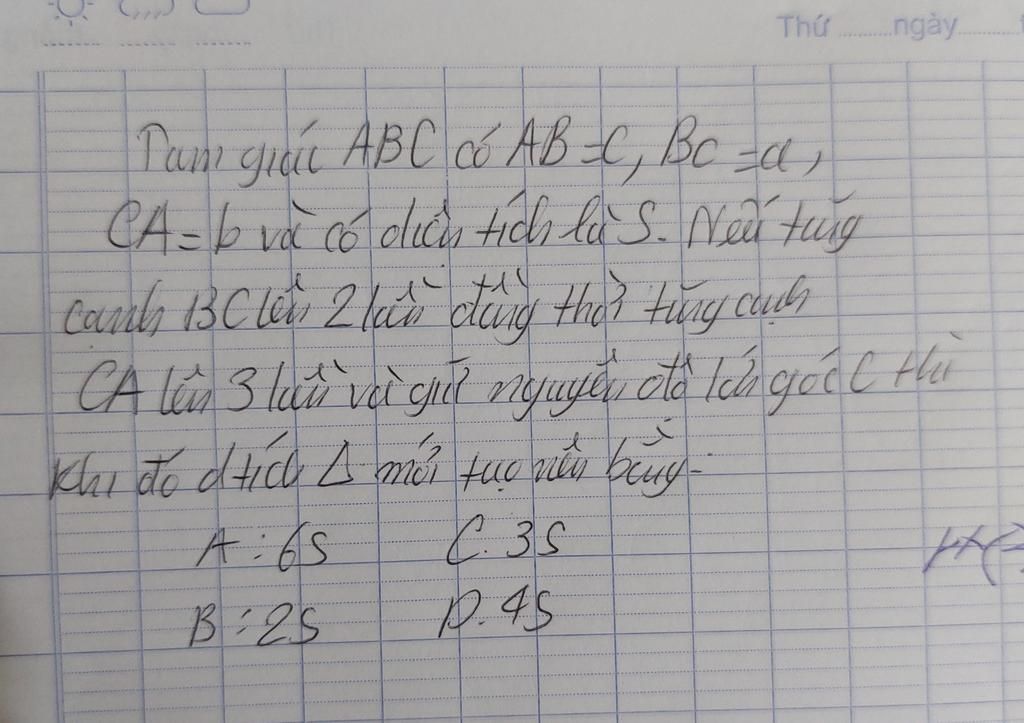 Thứ ........ngày........
Tam giác ABC có AB = C, BC = a,
CA = b và có diện tích là S. Nếu tăng
cạnh BC lên 2 lần đồng thời tăng cạnh
CA lên 3 lần và giữ nguyên độ lớn góc C thì
khi đó dtích Δ mới tạo nên bằng.
A: 6S C. 3S
B: 2S D. 4S